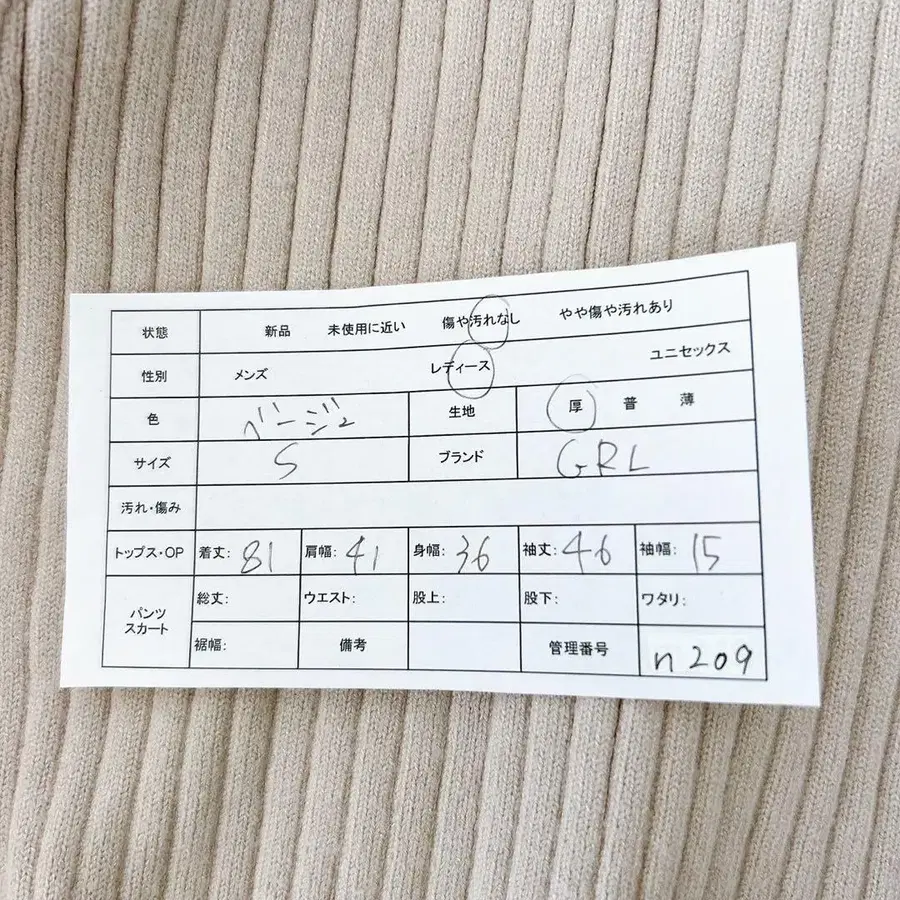 状態 新品 未使用に近い 傷や汚れなし やや傷や汚れあり
性別 メンズ レディース ユニセックス
色 ベージュ 生地 厚 普 薄
サイズ S ブランド GRL
汚れ・傷み
トップス・OP 着丈: 81 肩幅: 41 身幅: 36 袖丈: 46 袖幅: 15
パンツ スカート 総丈: ウエスト: 股上: 股下: ワタリ:
裾幅: 備考 管理番号 n209